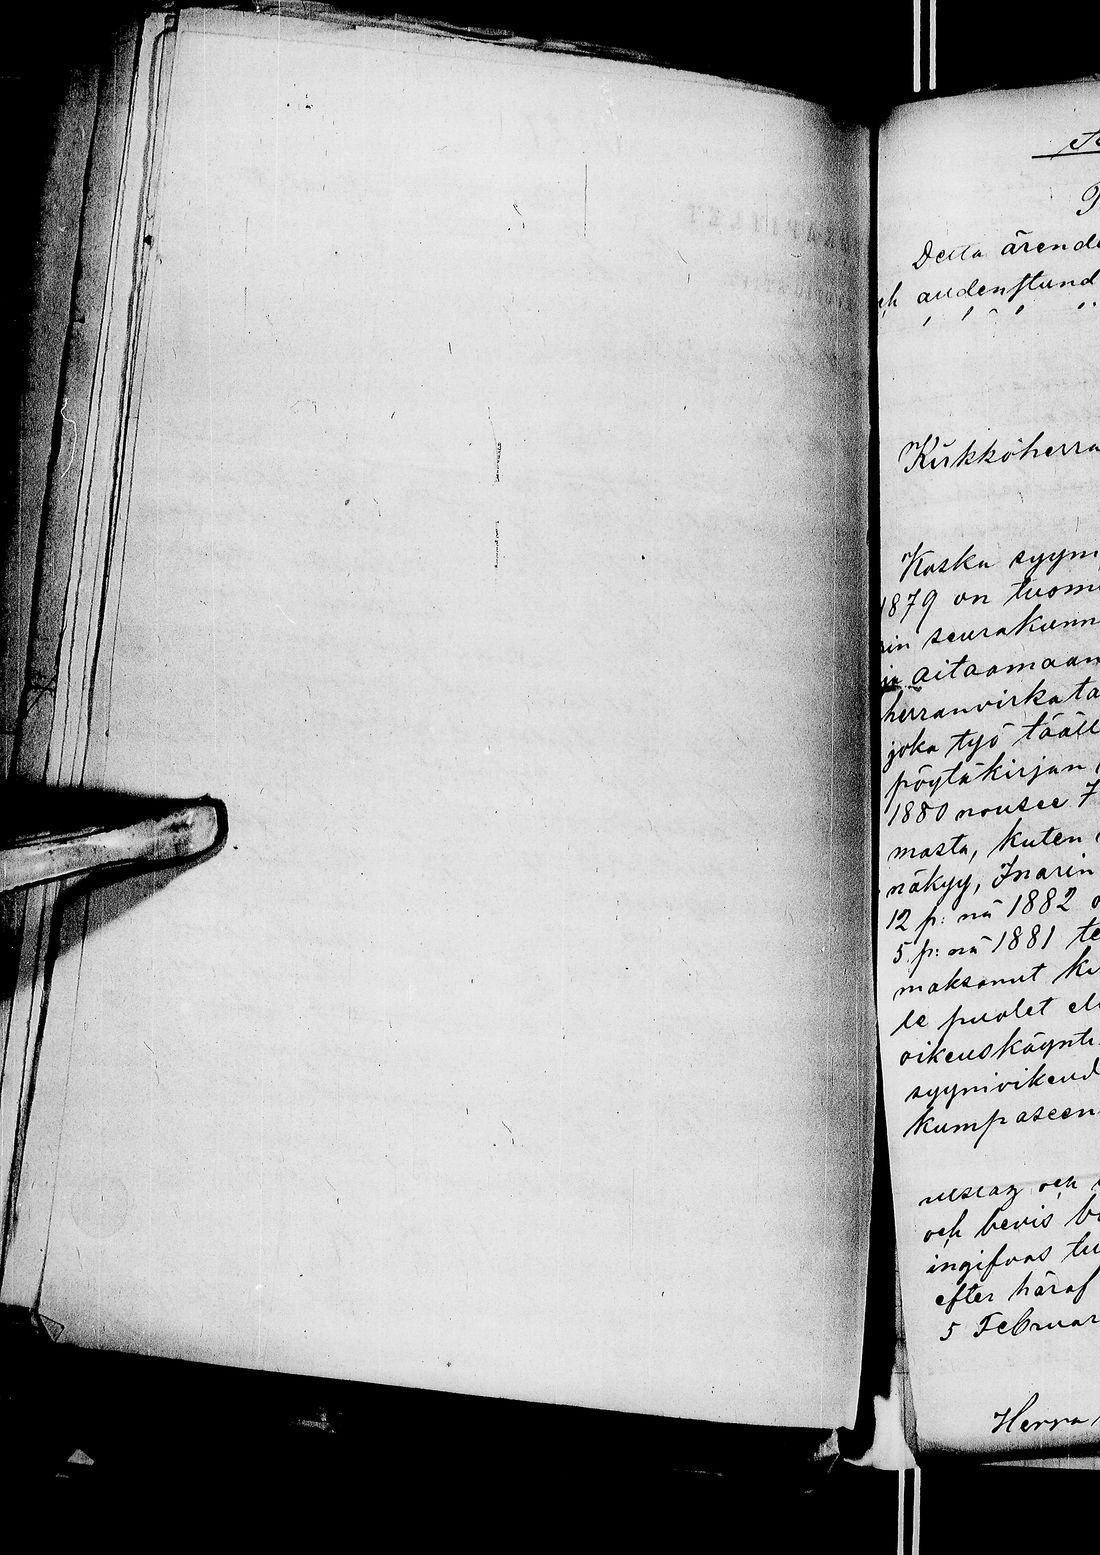 Detta ärende
och audenstund
Kirkkoherra
Koska syyni
1879 on tuomi
rin seurakunn
ja aitaamaan
herranvirkata
joka työ tääll
pöytäkirjan
1880 nousee 7
masta, kuten
näkyy, Inarin
12 p: nä 1882 o
5 p: nä 1881 te
maksanut ku
le puolet el
oikeuskäynti
syynivikend
kumpaseen
utslag och
och bevis b
ingifvas tu
efter häraf
5 Februar
Herra